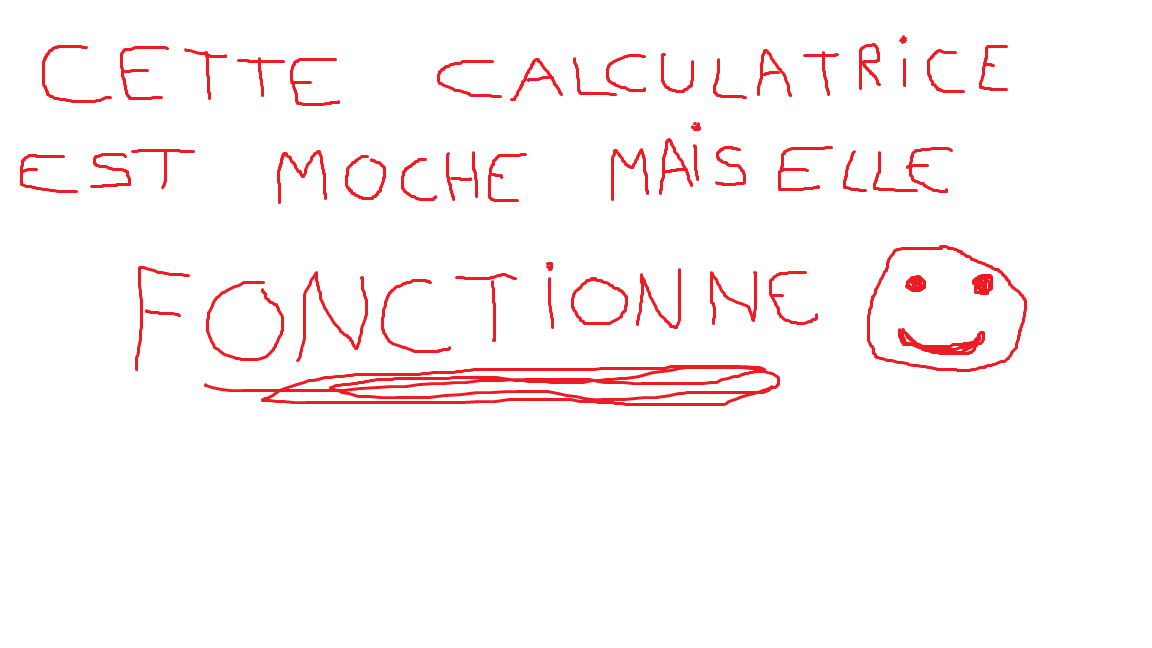 CETTE CALCULATRiCE
EST MOCHE MAiS ELLE
FONCTiONNE